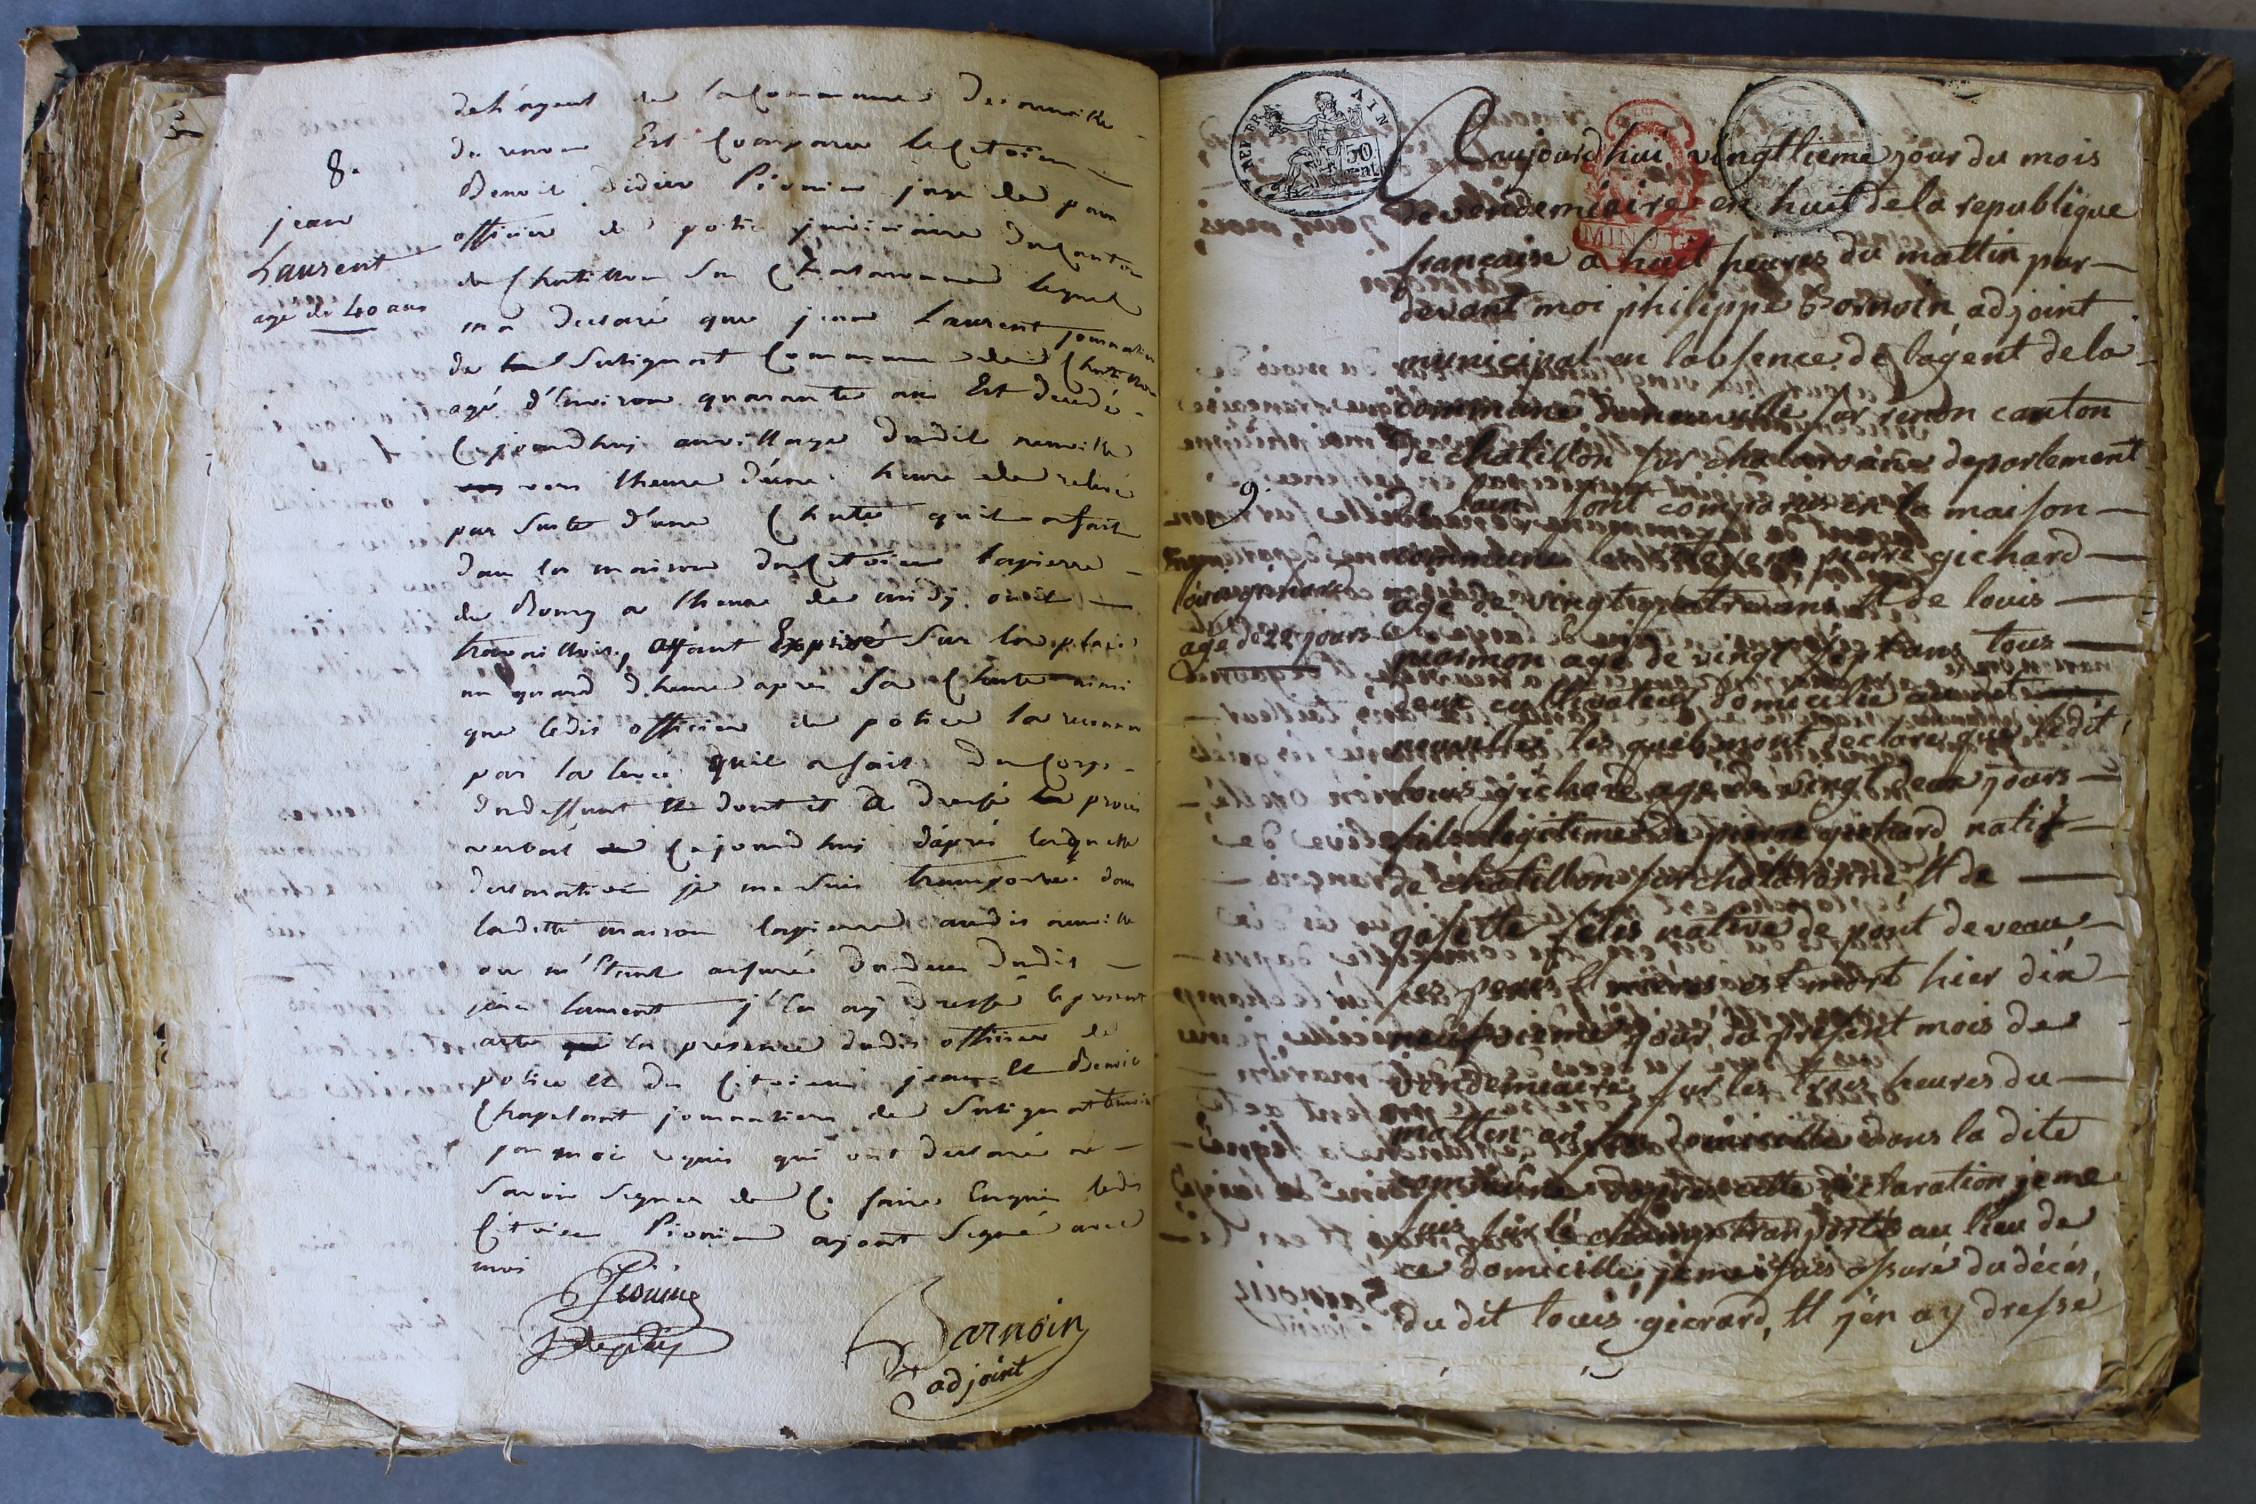 8.
jean
Laurent
agé de 40 ans
de l'agent de la Commune de neuville
de renon Est Comparu le Citoien
Benoit Didier Pionin juge de paix
officier de police judiciaire du Canton
de Chatillon sur Chalaronne lequel
m'a declaré que jean Laurent journalier
de Sulignat Commune de Chatillon
agé d'Environ quarante ans Est decedé
Cejourdhuy au village dudit neuville
vers l'heure d'une heure de relevé
par suite d'une Chute quil a fait
dans la maison du Citoien lapierre
de Bourg a l'heure de midy ou il
travailloit, ayant Expiré sur la place
un quard d'heure apres sa Chute ainsi
que ledit officier de police la reconnu
par la levée quil a fait du Corps
du deffunt et dont il a dressé proces
verbal Cejourdhui d'après laquelle
declaration je me suis transporté dans
laditte maison lapierre audit neuville
ou m'Etant assuré du deces dudit
jean laurent j'En ay dressé le present
acte En présence dudit officier de
police et des Citoiens jean et Benoit
Chapelant journaliers de Sulignat temoins
par moi requis qui ont declaré ne
savoir signer de Ce faire Enquis ledit
Citoien Pionin ayant signé avec
moi
Pionin
Barnoin
adjoint
AFFER
AIN
50
MINUTE
aujourd'hui vingtieme jour du mois
de vendemiaire en huit de la republique
française a huit heures du mattin par
devant moi philippe Barnoin adjoint
municipal en l'absence de l'agent de la
commune de neuville sur renon canton
de chatillon sur chalaronne departement
9.
de l'ain sont comparus en la maison
commune les citoyens pierre gichard
louis gichard
agé de vingt quatre ans et de louis
agé de 22 jours
marmon agé de vingt sept ans tous
deux cultivateurs domicilié
neuville, les quels m'ont declaré que ledit
louis gichard agé de vingt deux jours
fils legitime de pierre gichard natif
de chatillon sur chalaronne et de
native de pont de veau
ses peres et mères est mort hier dix
neufvieme jour du present mois de
vendemiaire, sur les trois heures du
mattin en son domicille dans la dite
commune d'apres cette declaration je me
suis sur le champ transportés au lieu de
ce domicille, je me suis assuré du décés,
du dit louis gicrard, et j'en ay dressé